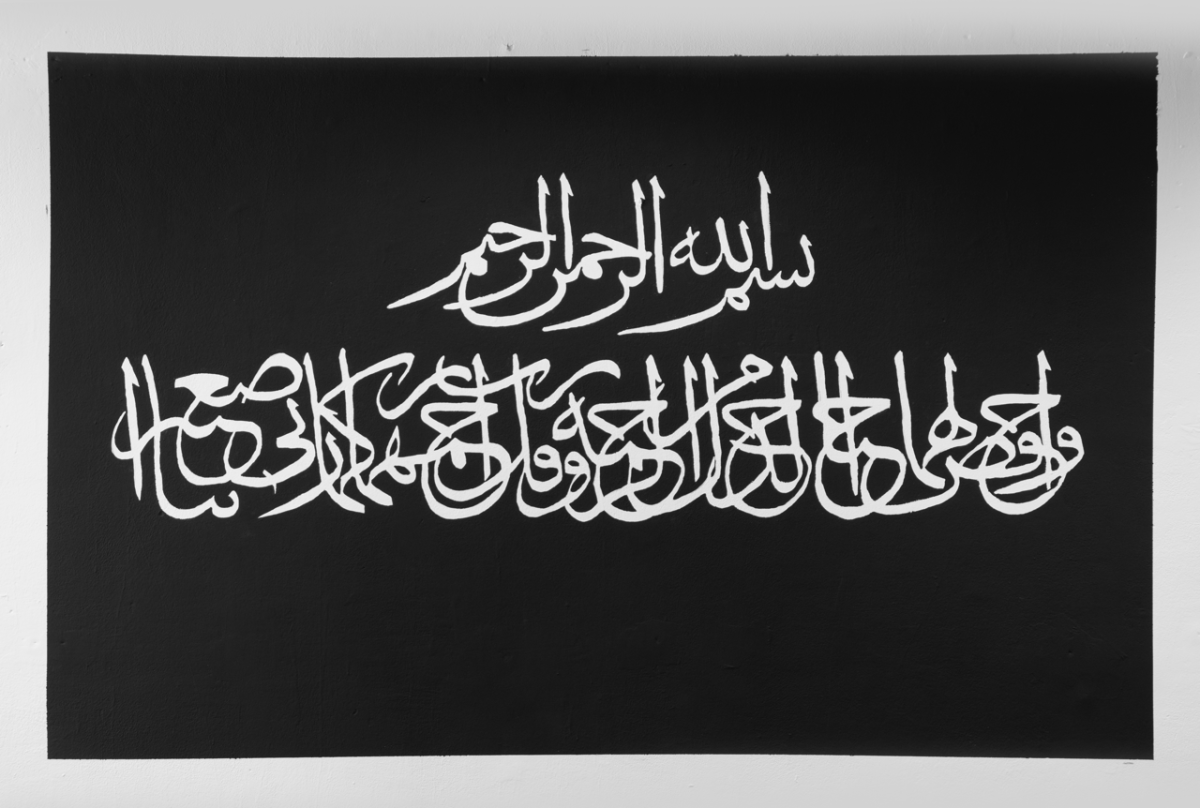 بسم الله الرحمن الرحيم
واخفض لهما جناح الذل من الرحمة وقل رب ارحمهما كما ربياني صغيرا